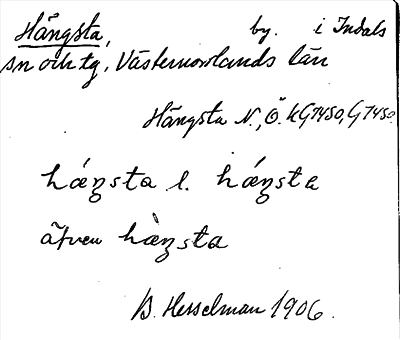 Hångsta, by. i Indals
sn och tg, Västernorrlands län
Hångsta N., Ö. kG7450, G7450.
hæŋsta l. hæŋsta
äfven hæŋsta
B. Hesselman 1906.